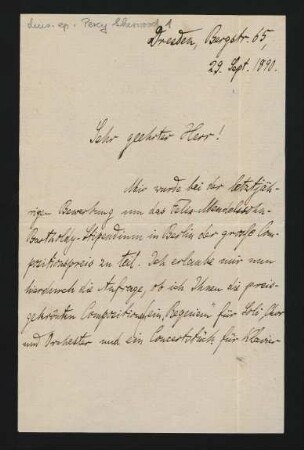 Mus. ep. Percy Sherwood 1
Dresden, Bergstr. 65,
29. Sept. 1890.
Sehr geehrter Herr!
Mir wurde bei der letztjäh-
rigen Bewerbung um das Felix-Mendelssohn-
Bartholdy-Stipendium in Berlin der grosse Com-
positionspreis zu teil. Ich erlaube mir nun
hierdurch die Anfrage, ob ich Ihnen die preis-
gekrönten Compositionen, ein „Requiem“ für Soli, Chor
und Orchester und ein Concertstück für Klavier